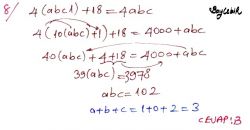 8/ 4(abc1)+18=4abc
Beylebir
4(10(abc)+1)+18=4000+abc
40(abc)+4+18=4000+abc
39(abc)=3978
abc=102
a+b+c=1+0+2=3
CEVAP:B